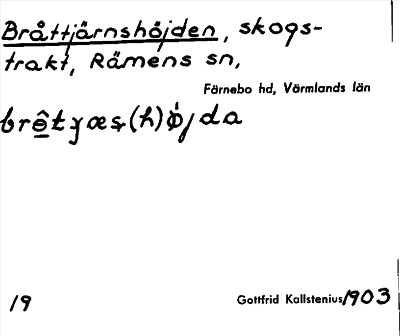 Bråttjärnshöjden, skogs-
trakt, Rämens sn,
Färnebo hd, Värmlands län
19
Gottfrid Kallstenius 1903